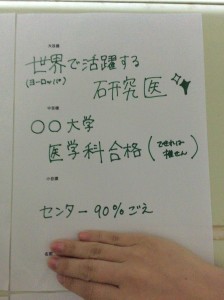 大目標
世界で活躍する
(ヨーロッパ)
研究医
中目標
○○大学
医学科合格(できれば推せん)
小目標
センター90%ごえ